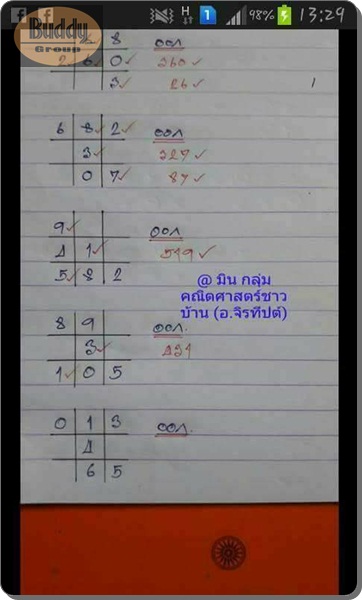 98%
13:29
Buddy
Group
8 ออก
2 6 0 260
3 26
6 8 2 ออก
3 327
0 7 87
9 ออก
4 1 519
5 8 2
@ มิน กลุ่ม
คณิตศาสตร์ชาว
บ้าน (อ.จิรทีปต์)
8 9 ออก
3 431
1 0 5
0 1 3 ออก
4
6 5